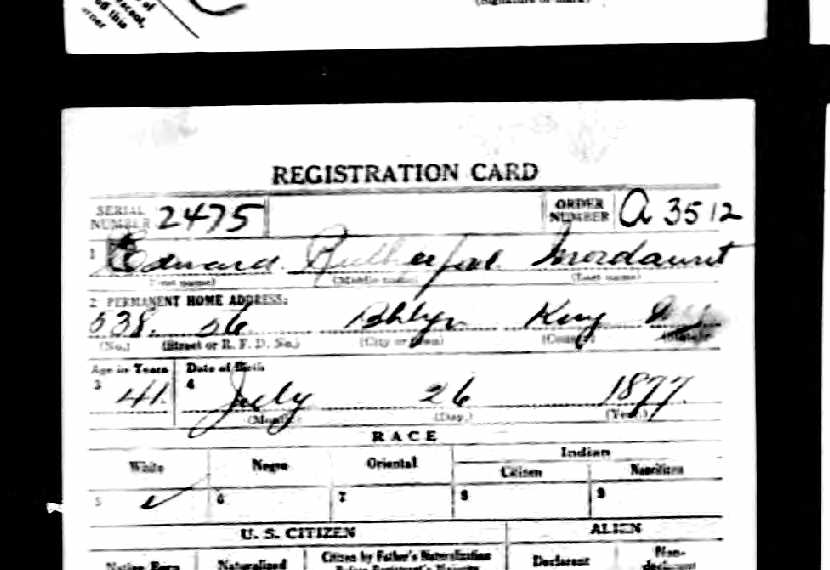 REGISTRATION CARD
SERIAL NUMBER 2475 ORDER NUMBER A 3512
1 Edward Rutherford Mordaunt
(First name) (Middle name) (Last name)
2 PERMANENT HOME ADDRESS:
538 56 Bklyn King
(No.) (Street or R. F. D. No.) (City or town) (County) (State)
Age in Years Date of Birth
3 41 4 July 26 1877
(Month) (Day.) (Year.)
RACE
White Negro Oriental Indian
Citizen Noncitizen
5 ✓ 6 7 8 9
U. S. CITIZEN ALIEN
Native Born Naturalized Citizen by Father's Naturalization Before Registrant's Majority Declarant Non-declarant